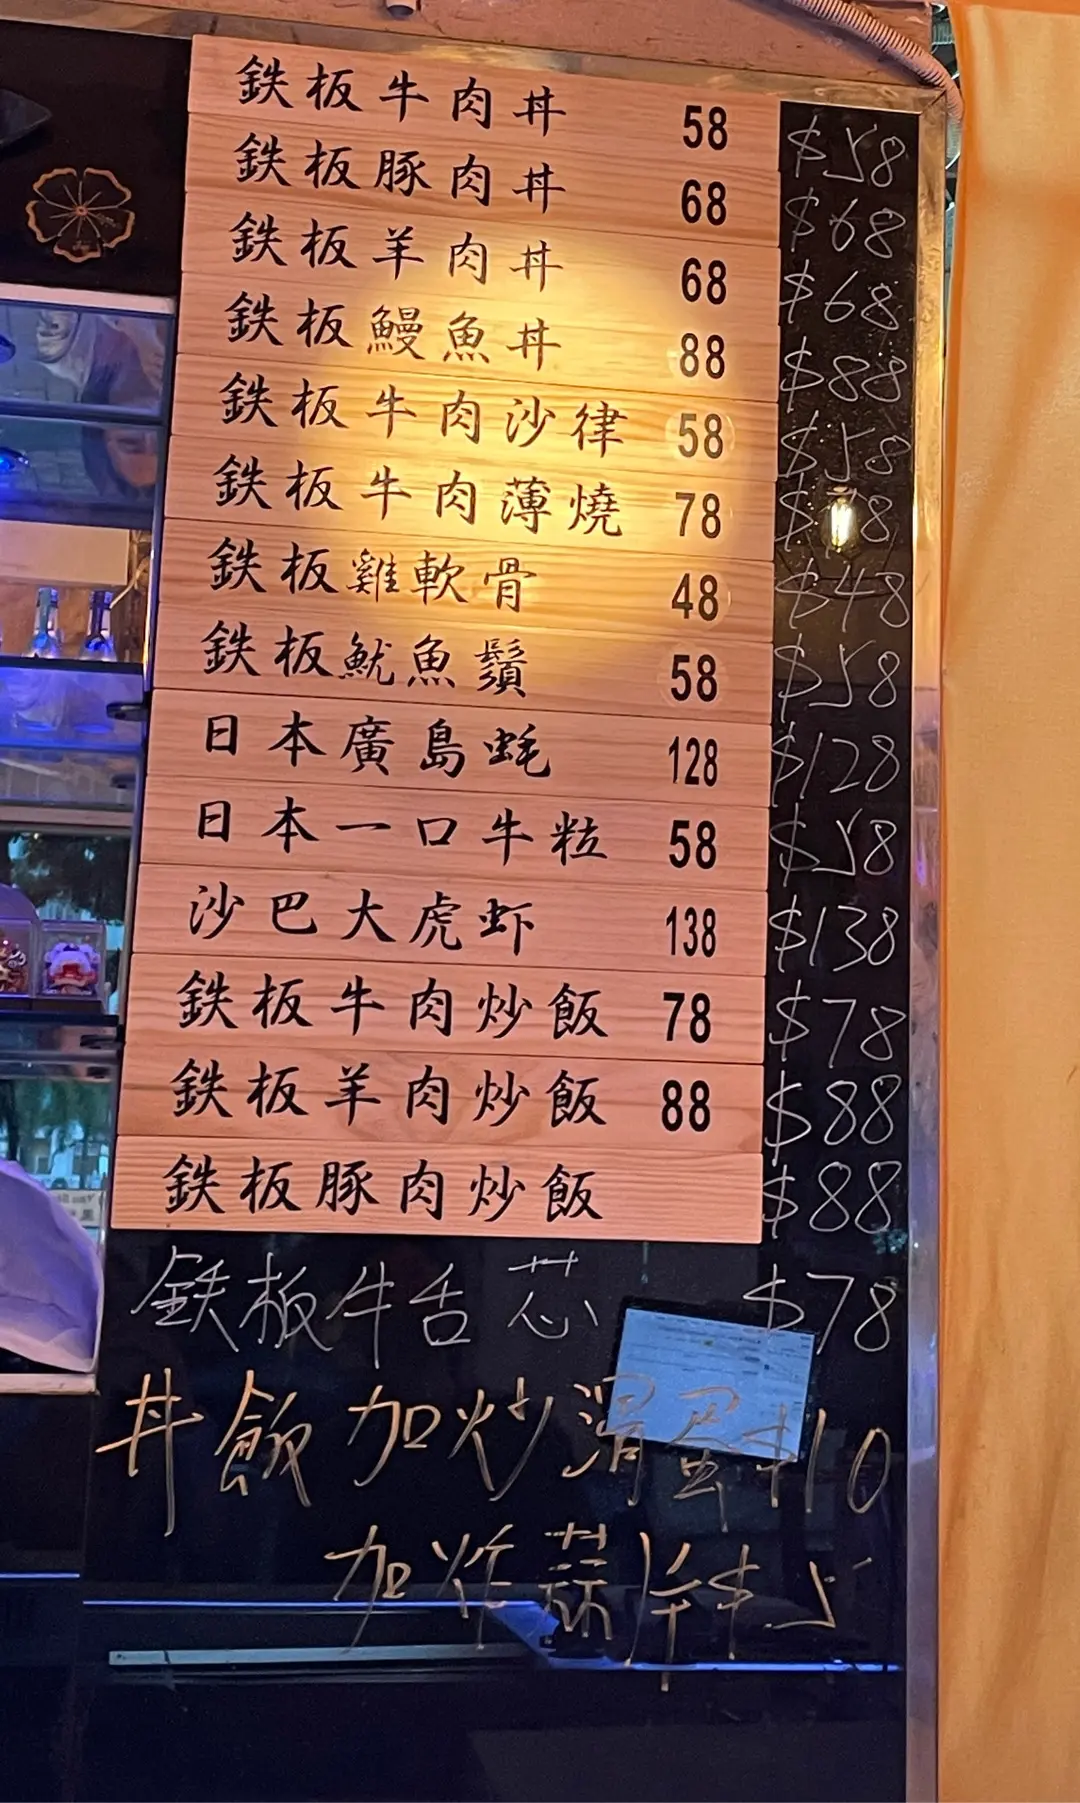 鉄板牛肉丼 58 $58
鉄板豚肉丼 68 $68
鉄板羊肉丼 68 $68
鉄板鰻魚丼 88 $88
鉄板牛肉沙律 58 $58
鉄板牛肉薄燒 78 $78
鉄板雞軟骨 48 $48
鉄板魷魚鬚 58 $58
日本廣島蚝 128 $128
日本一口牛粒 58 $58
沙巴大虎虾 138 $138
鉄板牛肉炒飯 78 $78
鉄板羊肉炒飯 88 $88
鉄板豚肉炒飯 $88
鉄板牛舌芯 $78
丼飯加炒滑蛋$10
加炸蒜片$5